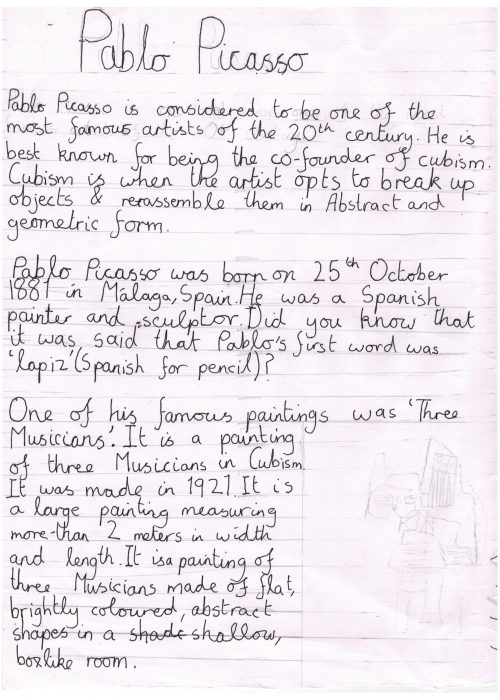 Pablo Picasso
Pablo Picasso is considered to be one of the
most famous artists of the 20th century. He is
best known for being the co-founder of cubism.
Cubism is when the artist opts to break up
objects & reassemble them in Abstract and
geometric form.
Pablo Picasso was born on 25th October
1881 in Málaga, Spain. He was a Spanish
painter and sculptor. Did you know that
it was said that Pablo's first word was
'lapiz' (Spanish for pencil)?
One of his famous paintings was 'Three
Musicians'. It is a painting
of three Musicians in Cubism.
It was made in 1921. It is
a large painting measuring
more than 2 meters in width
and length. It is a painting of
three Musicians made of flat,
brightly coloured, abstract
shapes in a shade shallow,
boxlike room.